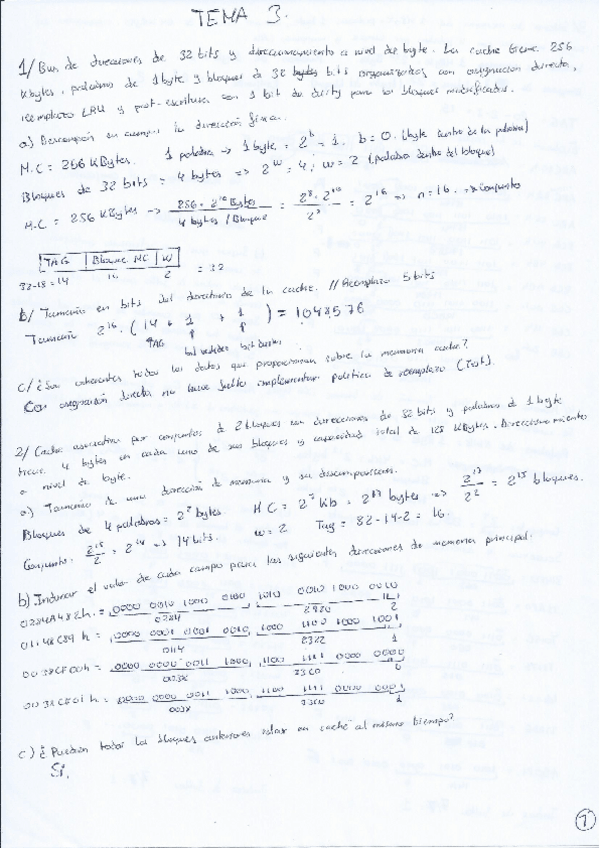 TEMA 3.
1/ Bus de direcciones de 32 bits y direccionamiento a nivel de byte. La cache tiene 256
Kbytes, palabras de 1 byte y bloques de 32 bits organizados con asignación directa,
reemplazo LRU y post-escritura con 1 bit de dirty para los bloques modificados.
a) Descomponer en campos la dirección física.
M.C = 256 KBytes. 1 palabra → 1 byte = 2^b = 1. b = 0. (byte dentro de la palabra)
Bloques de 32 bits = 4 bytes ⇒ 2^w = 4; w = 2 (palabra dentro del bloque)
M.C = 256 KBytes → 256 · 2^10 Bytes / 4 bytes/Bloque = 2^8 · 2^10 / 2^2 = 2^16 ⇒ n = 16.
TAG | Bloque MC | W
32-18 = 14 16 2 = 32
b/ Tamaño en bits del directorio de la cache. // Reemplazo 5 bits
Tamaño 2^16 · (14 + 1 + 1) = 1048576
TAG bit validez bit dirty
c/ ¿Son coherentes todos los datos que proporcionan sobre la memoria cache?
Con asignación directa no hace falta implementar política de reemplazo (Test).
2/ Cache asociativa por conjuntos de 2 bloques con direcciones de 32 bits y palabras de 1 byte
tiene 4 bytes en cada uno de sus bloques y capacidad total de 128 KBytes. Direccionamiento
a nivel de byte.
a) Tamaño de una dirección de memoria y su descomposición.
Bloques de 4 palabras = 2^2 bytes. MC = 2^7 Kb = 2^17 bytes ⇒ 2^17 / 2^2 = 2^15 bloques.
Conjunto: 2^15 / 2 = 2^14 ⇒ 14 bits. w = 2 Tag = 32 - 14 - 2 = 16.
b) Indicar el valor de cada campo para las siguientes direcciones de memoria principal:
0284A482h = 0000 0010 1000 0100 1010 0100 1000 0010
0284 2920 2
0114C89h = 0000 0001 0001 0100 1100 1000 1001
0114 1
0038CF00h = 0000 0000 0011 1000 1100 1111 0000 0000
0038 33C0 0
0038CF01h = 0000 0000 0011 1000 1100 1111 0000 0001
0038 33C0 1
c) ¿Pueden todos los bloques anteriores estar en caché al mismo tiempo?
Sí.
1